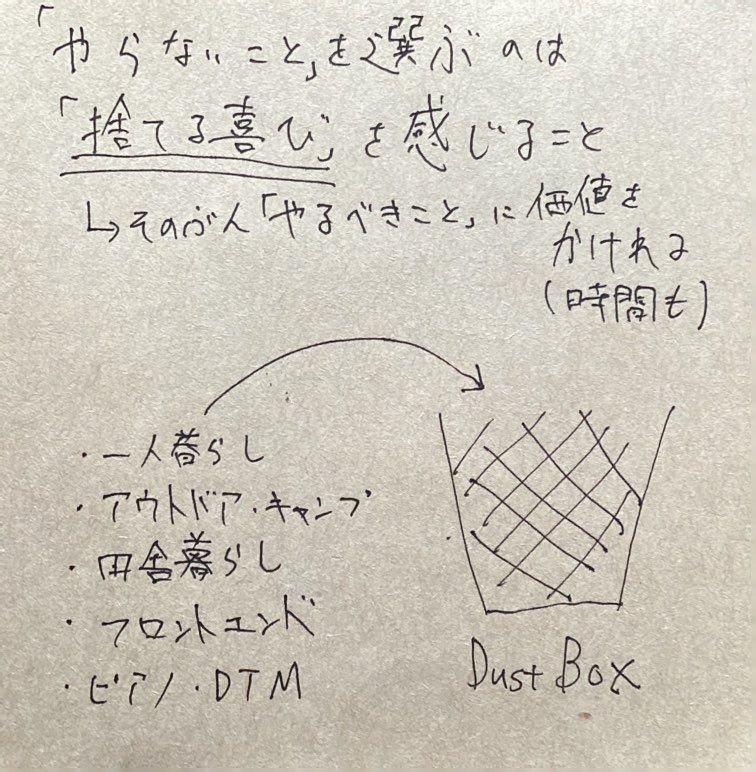 「やらないこと」を選ぶのは
「捨てる喜び」を感じること
↳そのぶん「やるべきこと」に価値を
かけれる
(時間も)
・一人暮らし
・アウトドア・キャンプ
・田舎暮らし
・フロントエンド
・ピアノ・DTM
Dust Box